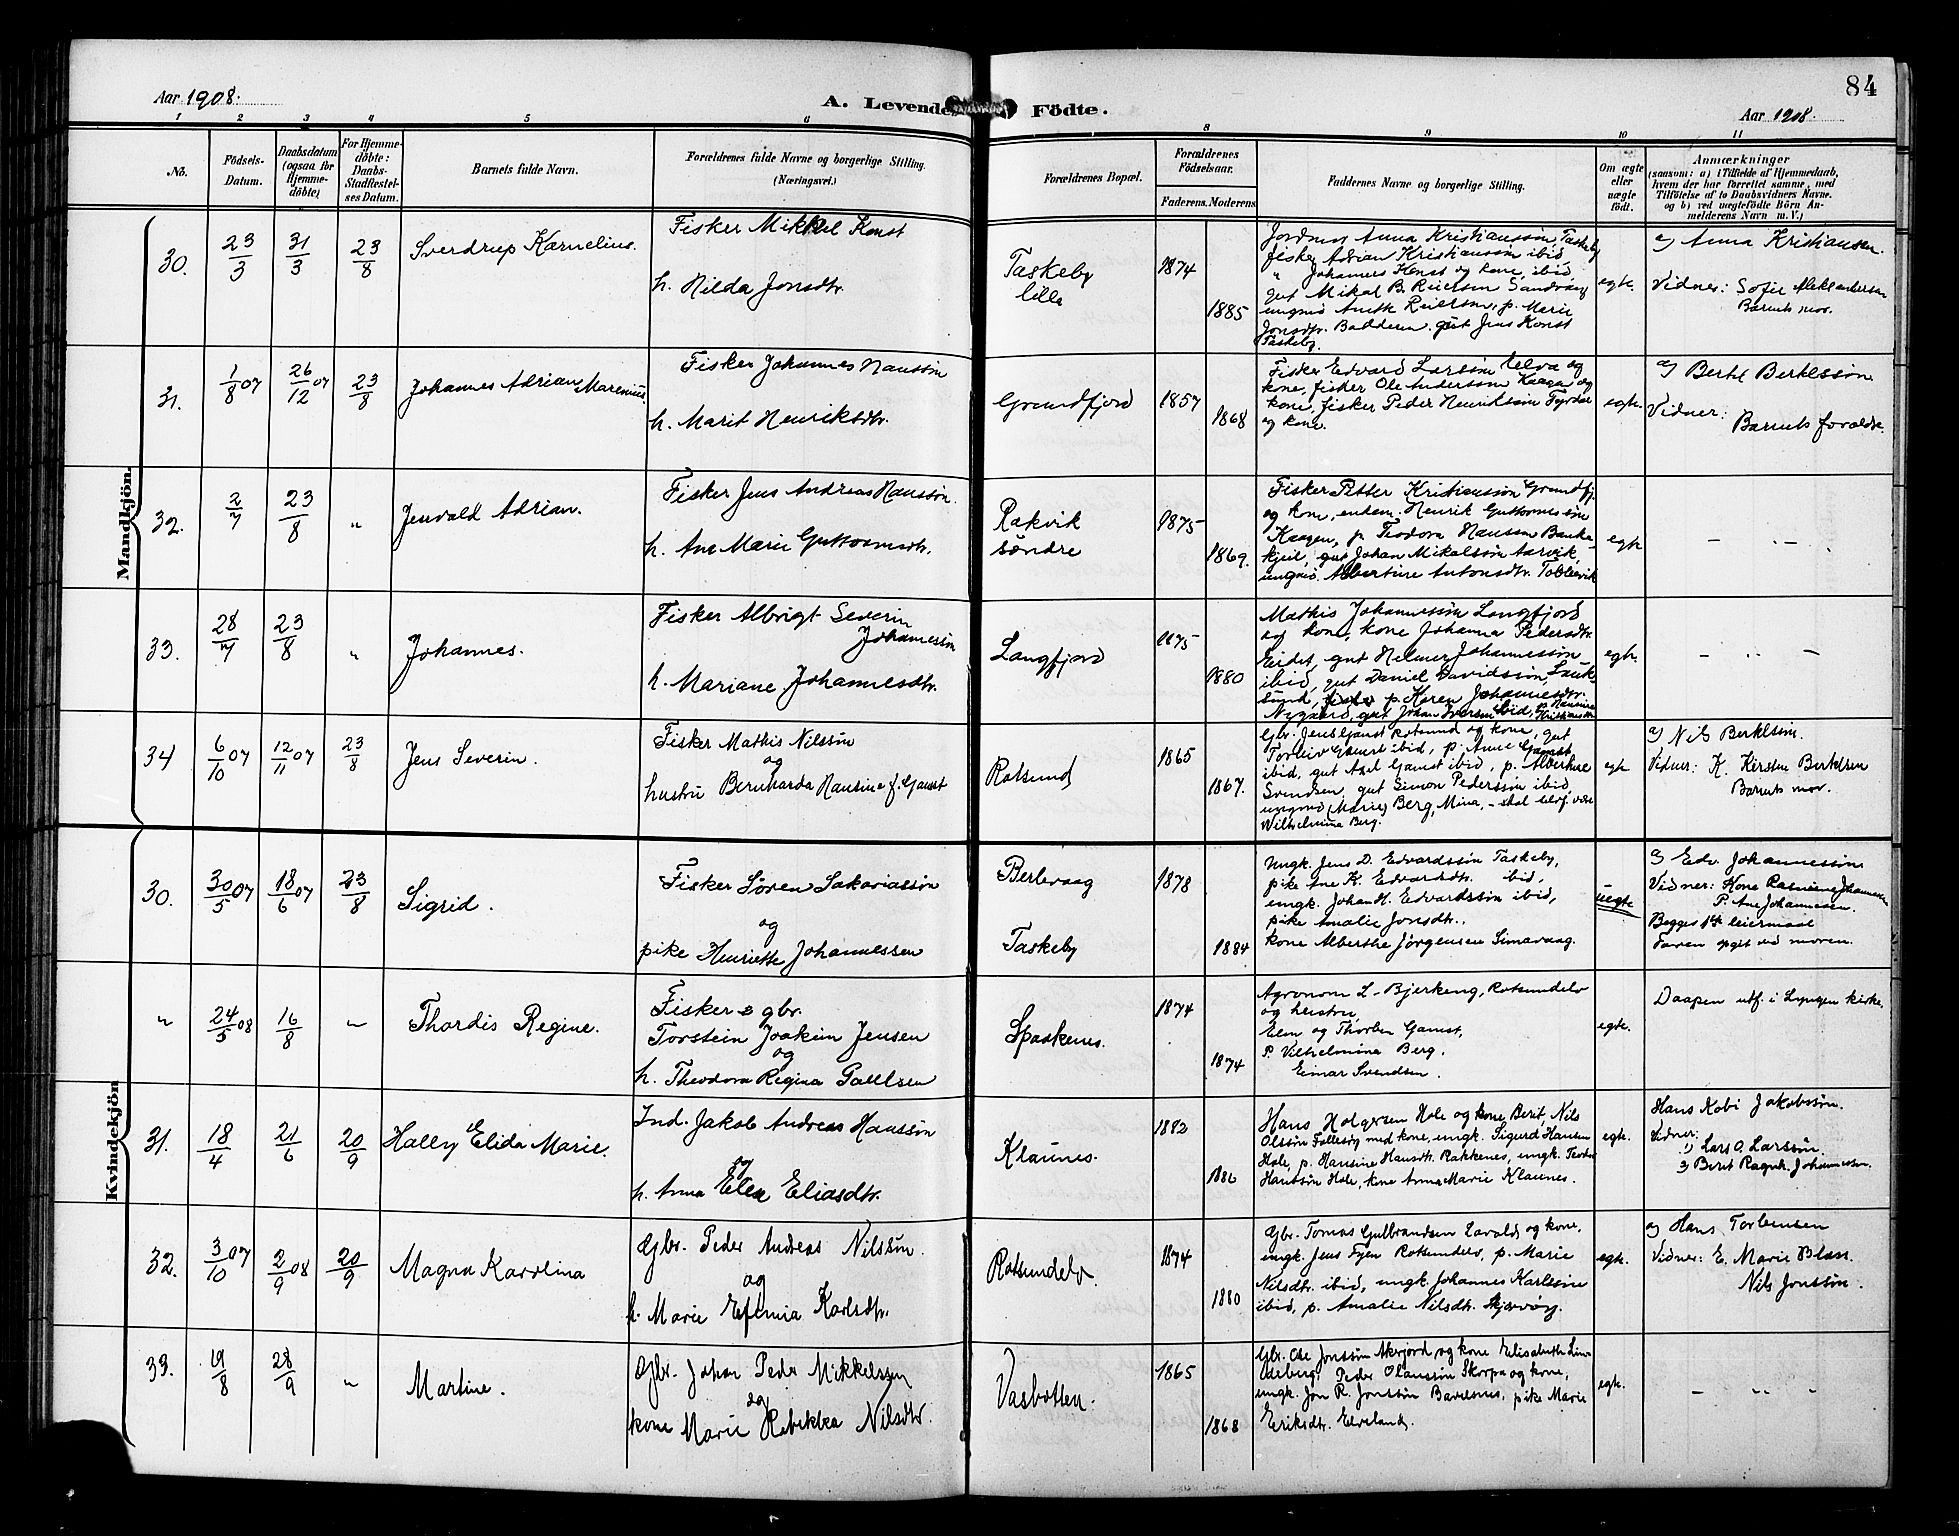 84
Aar 1908.
A. Levende Födte.
Aar 1908.
1 2 3 4 5 6 8 9 10 11
No.
Födsels-Datum.
Daabsdatum (ogsaa for Hjemmedöbte)
For Hjemmedöbte: Daabs-Stadfæstelses Datum.
Barnets fulde Navn.
Forældrenes fulde Navne og borgerlige Stilling. (Næringsvei.)
Forældrenes Bopæl.
Forældrenes Födselsaar.
Faderens. Moderens
Faddernes Navne og borgerlige Stilling.
Om ægte eller uægte födt.
Anmærkninger
(saasom: a) i Tilfælde af Hjemmedaab,
hvem der har forrettet samme, med
Tilföielse af to Daabsvidners Navne.
og b) ved uægtefödte Börn An-
melderens Navn m. V.)
Mandkjön.
30. 23/3 31/3 23/8 Sverdrup Kornelius.
Fisker Mikkel Konst
h. Hilda Jonsdtr.
Taskeby
lilla
1874
1885
Jordmor Anna Kristianssön, Taskeby
fisker Adrian Kristianssön ibid,
" Johannes Konst og kone, ibid,
gut Mikal B. Reiersen Sandvåg
ungmö Anette Reiersen, p. Marie
Jonsdtr. Badderen. gut Jens Konst
Taskeby.
egte.
a) Anna Kristiansen.
Vidner: Sofie Aleksandersen
Barnets mor.
31. 1/8 07 26/12 07 23/8 Johannes Adrian Marenius
Fisker Johannes Hanssön
h. Marit Henriksdtr.
Grundfjord
1857
1868
Fisker Edvard Larssön Elva og
kone, fisker Ole Anderssön Kaagen og
kone, fisker Peder Henrikssön
og kone.
egte.
a) Bertel Bertelssön
Vidner:
Barnets forældre.
32. 2/7 23/8 " Jenvald Adrian.
Fisker Jens Andreas Hanssön.
h. Ane Marie Guttormsdtr.
Rakvik
söndre
1875
1869.
Fisker Petter Kristianssön Grundfj.
og kone, enkem. Henrik Guttormssön
Kaagen, p. Teodora Hanssen Banke-
kjeil, gut Johan Mikalssön Aarvik,
ungmö. Albertine Antonsdtr. Toblervik
egte
- " -
33. 28/7 23/8 " Johannes.
Fisker Albrigt Severin
Johannessön
h. Mariane Johannesdtr.
Langfjord
1875
1880
Mathis Johannessön Langfjord
og kone, kone Johanna Pedersdtr.
Eidet, gut Helmer Johannessön
ibid, gut Daniel Davidssön, Lauk-
sund, p. Karen Johannesdtr.
Nygaard, gut Johan Iversen ibid, p. Hansine Kristiansdtr.
egte.
- " -
34 6/10 07 12/11 07 23/8 Jens Severin.
Fisker Mathis Nilssön
og
hustru Bernharda Hansine f. Gamst
Rotsund
1865
1867.
Gbr. Jens Gamst Rotsund og kone, gut
Torleiv Gamst ibid, p. Anne Gamst
ibid, gut Axel Gamst ibid, p. Albertine
Svendsen, gut Simon Pederssön ibid,
ungmö (Marie) Berg, Mina, - skal være
Wilhelmina Berg.
egte
a) Nils Bertelsön.
Vidner: K. Kirsten Bertelsen
Barnets mor.
Kvindekjön
30. 30/5 07 18/6 07 23/8 Sigrid.
Fisker Sören Sakariassön
og
pike Henriette Johannessen
Berlevaag
Taskeby
1878
1884
Ungk. Jens D. Edvardssön Taskeby,
pike Ane K. Edvardsdtr. ibid,
ungk. Johan H. Edvardssön ibid,
pike Amalie Jonsdtr.,
kone Alberthe Jörgensen Simavaag.
uegte
a) Edv. Johannessön
Vidner: Kone Rasmine Johannessen
P. Ane Johannesen.
Begges 1ste leiermaal
Faren opgit ved moren.
" 24/5 08 16/8 " Thordis Regine.
Fisker & gbr.
Torstein Joakim Jensen
og
h. Theodora Regina Paulsen
Spaakenes.
1874
1874
Agronom L. Bjerkeng, Rotsundelv
og hustru,
Elen og Thorleiv Gamst,
P. Vilhelmina Berg.
Einar Svendsen.
egte.
Daapen utf. i Lyngen kirke.
31. 18/4 21/6 20/9 Hally Elida Marie.
Ind. Jakob Andreas Hanssön
og
h. Anna Elen Eliasdtr.
Klaunes.
1882
1886
Hans Holgersen Hole og kone Berit, Nils
Olssön Follesöy med kone, ungk. Sigurd Hansen
Hole, p. Hansine Hansdtr. Rakkenes, ungk. Teodor
Hanssön Hole, kone Anna Marie Klaunes.
egte.
Hans Kobi Jakobssön.
Vidner:
1) Lars O. Larssön.
2) Berit Ragnh. Johannessen.
32. 3/10 07 2/9 08 20/9 Magna Karolina
Gbr. Peder Andreas Nilssön.
og
h. Marie Efenia Karlsdtr.
Rotsundelv.
1874
1880
Gbr. Tomas Gulbrandsen Lavold og kone,
ungk. Jens Fyen Rotsundelv, p. Marie
Nilsdtr. ibid, ungk. Johannes Karlssön
ibid, p. Amalie Nilsdtr. Skjervöy.
egte.
a) Hans Torbensen
Vidner: E. Marie Blæs.
Nils Jonssön.
33. 19/8 28/9 " Martine.
Gbr. Johan Peder Mikkelssen
og
kone Marie Rebekka Nilsdtr.
Vasbotten.
1865
1868
Gbr. Ole Jonssön Akerjord og kone Elisabeth Lin-
deberg, Peder Olaussön Skorpa og kone,
ungk. Jon R. Jonssön Bavelsnes, pike Marie
Eriksdtr. Elveland.
egte.
- " -